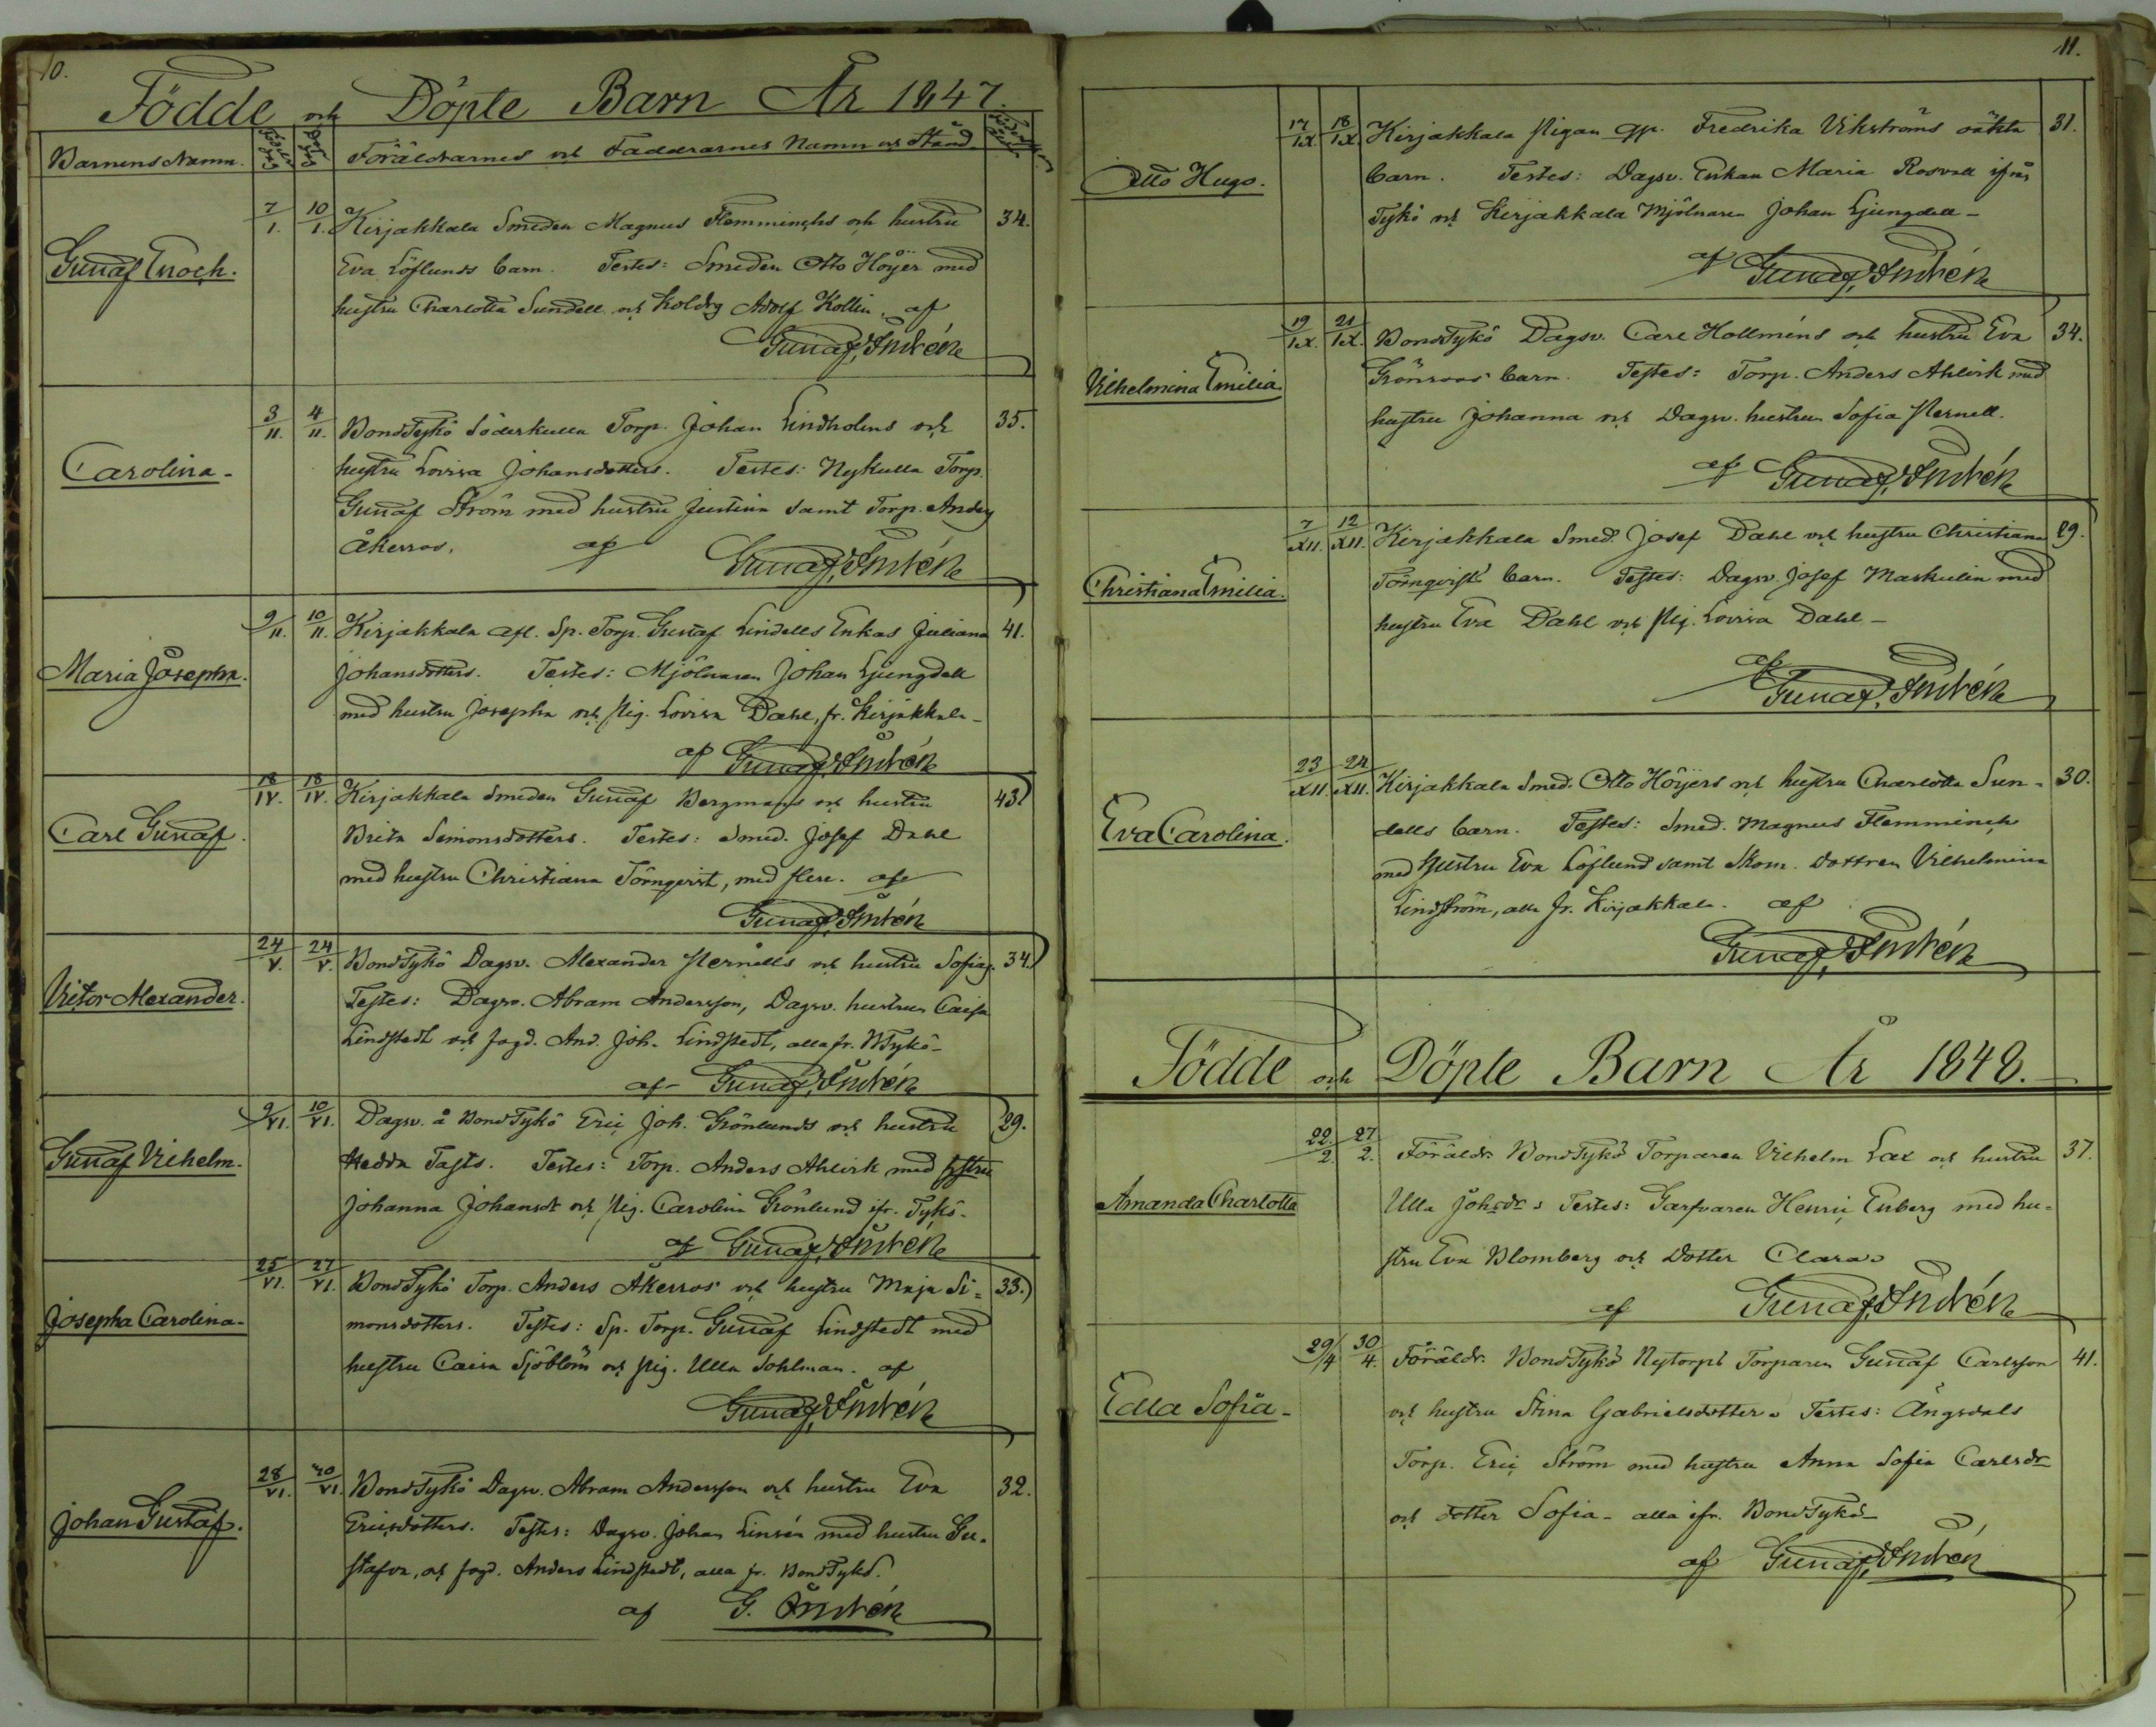 10.
Födde och Döpte Barn År 1847.
Barnens Namn. Föräldrarnes och Faddrarnes Namn och Stånd
Gustaf Enoch. 7/I. 10/I. Kirjakkala Smeden Magnus Flemminchs och hustru 34.
Eva Löflunds barn. Testes: Smeden Otto Höijer med
hustru Charlotta Sundell och Koldrg Adolf Kollin, af
Gustaf Andrén
Carolina - 3/II. 4/II. BondTykö Söderkulla Torp. Johan Lindholms och 35.
hustru Lovisa Johansdotters. Testes: Nykulla Torp.
Gustaf Ström med hustru Justina samt Torp. Anders
Åkerros, af Gustaf Andrén
Maria Josepha. 9/II. 10/II. Kirjakkala afl. Sp. Torp. Gustaf Lindells Enkas Juliana 41.
Johansdotters. Testes: Mjölnaren Johan Ljungdell
med hustru Josepha och Pig. Lovisa Dahl, fr. Kirjakkala -
af Gustaf Andrén
Carl Gustaf. 18/IV. 18/IV. Kirjakkala Smeden Gustaf Bergmans och hustru 43.
Brita Simonsdotters. Testes: Smed. Josef Dahl
med hustru Christiana Törnqvist, med flere. af
Gustaf Andrén
Victor Alexander. 24/V. 24/V. BondTykö Dagsv. Alexander Pernells och hustru Sofias. 34.
Testes: Dagsv. Abram Andersson, Dagsv. hustrun Caisa
Lindstedt och fogd. And. Joh. Lindstedt, alla fr. BTykö -
af Gustaf Andrén
Gustaf Vilhelm. 9/VI. 10/VI. Dagsv. å BondTykö Eric Joh. Grönlunds och hustru 29.
Hedda Tasts. Testes: Torp. Anders Ahlvik med hustru
Johanna Johansdr och Pig. Carolina Grönlund ifr. Tykö -
af Gustaf Andrén
Josepha Carolina - 25/VI. 27/VI. BondTykö Torp. Anders Åkerros och hustru Maja Si= 33.
monsdotters. Testes: Sp. Torp. Gustaf Lindstedt med
hustru Caisa Sjöblom och Pig. Ulla Sohlman. af
Gustaf Andrén
Johan Gustaf. 28/VI. 30/VI. BondTykö Dagsv. Abram Andersson och hustru Eva 32.
Ericsdotters. Testes: Dagsv. Johan Linsén med hustru Gu=
stafva, och fogd. Anders Lindstedt, alla fr. BondTykö.
af G. Andrén
11.
Otto Hugo. 17/IX. 18/IX. Kirjakkala Pigan Fredrika Vikströms oäkta 31.
barn. Testes: Dagsv. Enkan Maria Rosvall ifrån
Tykö och Kirjakkala Mjölnaren Johan Ljungdell -
af Gustaf Andrén
Vilhelmina Emilia. 19/IX. 21/IX. BondTykö Dagsv. Carl Hollméns och hustru Eva 34.
Grönroos barn. Testes: Torp. Anders Ahlvik med
hustru Johanna och Dagsv. hustrun Sofia Pernell.
af Gustaf Andrén
Christiana Emilia. 7/XII. 12/XII. Kirjakkala Smed. Josef Dahl och hustru Christiana 29.
Törnqvists barn. Testes: Dagsv. Josef Maskulin med
hustru Eva Dahl och Pig. Lovisa Dahl -
af
Gustaf Andrén
Eva Carolina. 23/XII. 24/XII. Kirjakkala Smed. Otto Höijers och hustru Charlotta Sun= 30.
dells barn. Testes: Smed. Magnus Flemminch
med hustru Eva Löflund samt Skom. dottren Vilhelmina
Lindström, alla fr. Kirjakkala. af
Gustaf Andrén
Födde och Döpte Barn År 1848.
Amanda Charlotta 22/2. 27/2. Föräldr. BondTykö Torparen Vilhelm Lax och hustru 37.
Ulla Johsdr. Testes: Garfvaren Henric Enberg med hu=
stru Eva Blomberg och dotter Clara.
af Gustaf Andrén
Edla Sofia - 29/4 30/4. Föräldr. BondTykö Nytorps Torparen Gustaf Carlsson 41.
och hustru Stina Gabrielsdotter. Testes: Ängsdals
Torp. Eric Ström med hustru Anna Sofia Carlsdr
och dotter Sofia - alla ifr. BondTykö -
af Gustaf Andrén